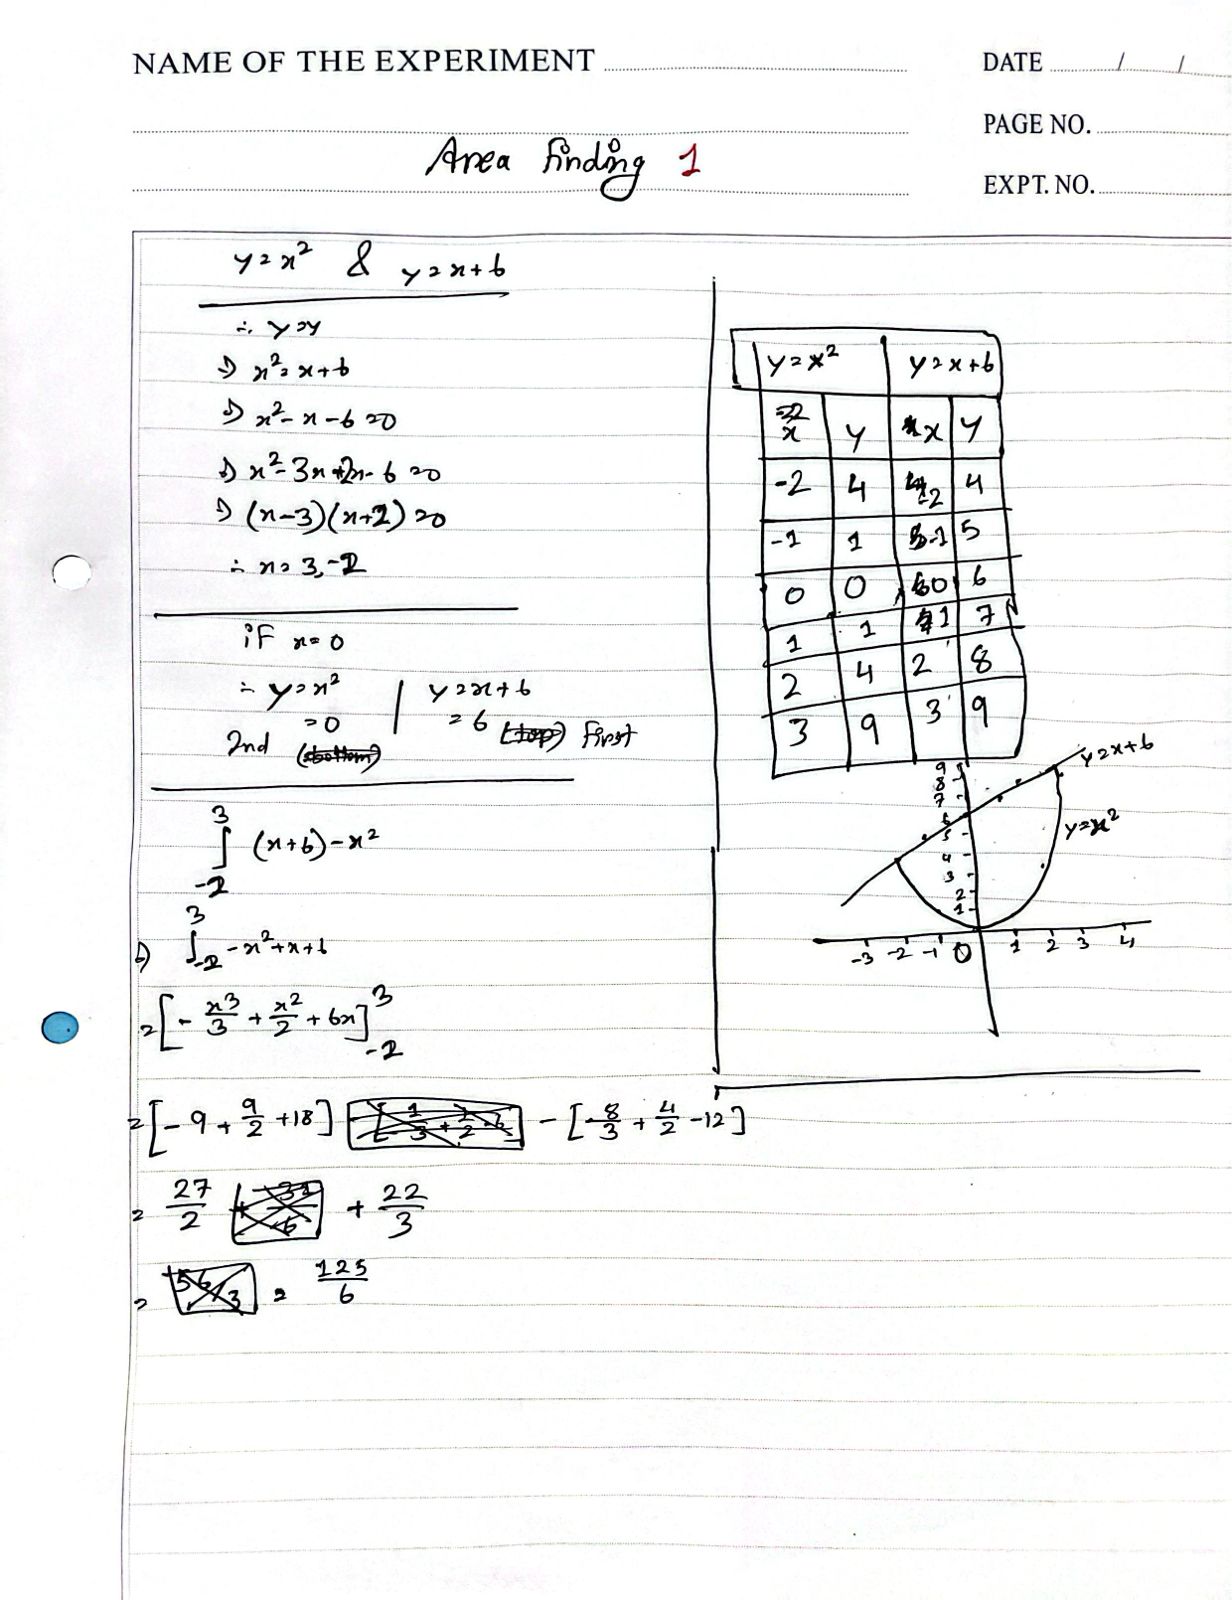 NAME OF THE EXPERIMENT
DATE / /
PAGE NO.
EXPT. NO.
Area finding 1
y = x² & y = x+6
∴ y=y
⇒ x² = x+6
⇒ x² - x - 6 = 0
⇒ x² - 3x + 2x - 6 = 0
⇒ (x-3)(x+2) = 0
∴ x = 3, -2
if x = 0
∴ y = x² | y = x+6
= 0 = 6 (top) first
2nd (bottom)
∫₋₂³ (x+6) - x²
⇒ ∫₋₂³ -x² + x + 6
= [-x³/3 + x²/2 + 6x]₋₂³
= [-9 + 9/2 + 18] - [-8/3 + 4/2 - 12]
= 27/2 + 22/3
= 56/3 = 125/6
y = x² | y = x+6
x | y | x | y
-2 | 4 | -2 | 4
-1 | 1 | -1 | 5
0 | 0 | 0 | 6
1 | 1 | 1 | 7
2 | 4 | 2 | 8
3 | 9 | 3 | 9
y = x+6
y = x²
9
8
7
6
5
4
3
2
1
-3 -2 -1 0 1 2 3 4